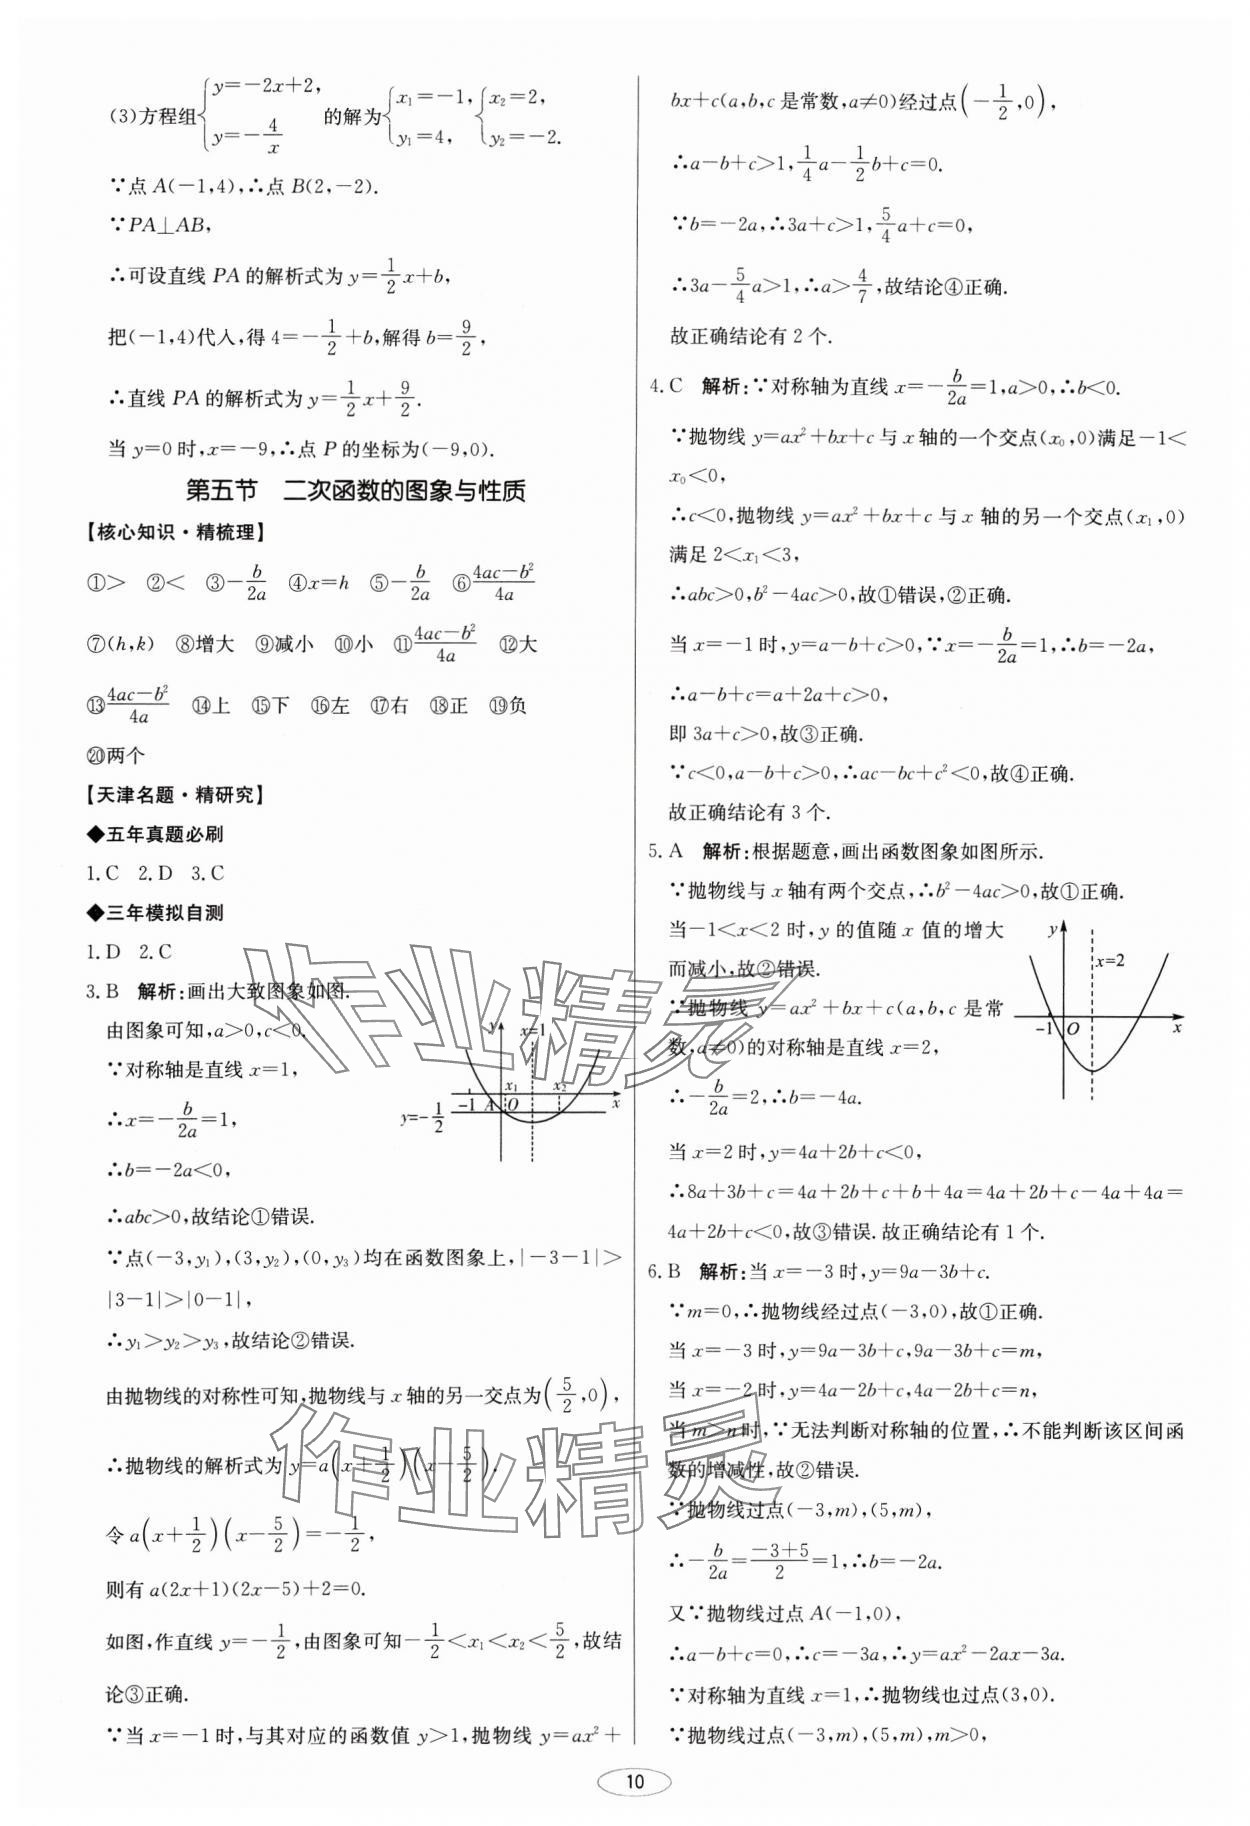 (3)方程组{y=-2x+2, y=-4/x 的解为{x₁=-1, y₁=4, {x₂=2, y₂=-2.
∵点 A(-1,4),∴点 B(2,-2).
∵PA⊥AB,
∴可设直线 PA 的解析式为 y=1/2x+b,
把(-1,4)代入,得 4=-1/2+b,解得 b=9/2,
∴直线 PA 的解析式为 y=1/2x+9/2.
当 y=0 时,x=-9,∴点 P 的坐标为(-9,0).
第五节 二次函数的图象与性质
【核心知识·精梳理】
①> ②< ③-b/2a ④x=h ⑤-b/2a ⑥(4ac-b²)/4a
⑦(h,k) ⑧增大 ⑨减小 ⑩小 ⑪(4ac-b²)/4a ⑫大
⑬(4ac-b²)/4a ⑭上 ⑮下 ⑯左 ⑰右 ⑱正 ⑲负
⑳两个
【天津名题·精研究】
◆五年真题必刷
1.C 2.D 3.C
◆三年模拟自测
1.D 2.C
3.B 解析:画出大致图象如图.
由图象可知,a>0,c<0.
∵对称轴是直线 x=1,
∴x=-b/2a=1,
∴b=-2a<0,
y x=1
x₁ x₂
-1 A O x
y=-1/2
∴abc>0,故结论①错误.
∵点(-3,y₁),(3,y₂),(0,y₃)均在函数图象上,|-3-1|>
|3-1|>|0-1|,
∴y₁>y₂>y₃,故结论②错误.
由抛物线的对称性可知,抛物线与 x 轴的另一交点为(5/2,0),
∴抛物线的解析式为 y=a(x+1/2)(x-5/2).
令 a(x+1/2)(x-5/2)=-1/2,
则有 a(2x+1)(2x-5)+2=0.
如图,作直线 y=-1/2,由图象可知-1/2<x₁<x₂<5/2,故结
论③正确.
∵当 x=-1 时,与其对应的函数值 y>1,抛物线 y=ax²+
bx+c(a,b,c 是常数,a≠0)经过点(-1/2,0),
∴a-b+c>1,1/4a-1/2b+c=0.
∵b=-2a,∴3a+c>1,5/4a+c=0,
∴3a-5/4a>1,∴a>4/7,故结论④正确.
故正确结论有 2 个.
4.C 解析:∵对称轴为直线 x=-b/2a=1,a>0,∴b<0.
∵抛物线 y=ax²+bx+c 与 x 轴的一个交点(x₀,0)满足-1<
x₀<0,
∴c<0,抛物线 y=ax²+bx+c 与 x 轴的另一个交点(x₁,0)
满足 2<x₁<3,
∴abc>0,b²-4ac>0,故①错误,②正确.
当 x=-1 时,y=a-b+c>0,∵x=-b/2a=1,∴b=-2a,
∴a-b+c=a+2a+c>0,
即 3a+c>0,故③正确.
∵c<0,a-b+c>0,∴ac-bc+c²<0,故④正确.
故正确结论有 3 个.
5.A 解析:根据题意,画出函数图象如图所示.
∵抛物线与 x 轴有两个交点,∴b²-4ac>0,故①正确.
当-1<x<2 时,y 的值随 x 值的增大
而减小,故②错误.
∵抛物线 y=ax²+bx+c(a,b,c 是常
数,a≠0)的对称轴是直线 x=2,
∴-b/2a=2,∴b=-4a.
y
x=2
-1 O x
当 x=2 时,y=4a+2b+c<0,
∴8a+3b+c=4a+2b+c+b+4a=4a+2b+c-4a+4a=
4a+2b+c<0,故③错误.故正确结论有 1 个.
6.B 解析:当 x=-3 时,y=9a-3b+c.
∵m=0,∴抛物线经过点(-3,0),故①正确.
当 x=-3 时,y=9a-3b+c,9a-3b+c=m,
当 x=-2 时,y=4a-2b+c,4a-2b+c=n,
当 m>n 时,∵无法判断对称轴的位置,∴不能判断该区间函
数的增减性,故②错误.
∵抛物线过点(-3,m),(5,m),
∴-b/2a=(-3+5)/2=1,∴b=-2a.
又∵抛物线过点 A(-1,0),
∴a-b+c=0,∴c=-3a,∴y=ax²-2ax-3a.
∵对称轴为直线 x=1,∴抛物线也过点(3,0).
∵抛物线过点(-3,m),(5,m),m>0,
10
作业精灵
作业精灵